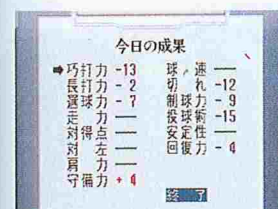 今日の成果
➡巧打力 -13 球 速 ――
長打力 - 2 切 れ -12
選球力 - 7 制球力 - 9
走 力 ―― 投球術 -15
対得点 ―― 安定性 ――
対 左 ―― 回復力 - 4
肩 力 ――
守備力 + 4
終 了